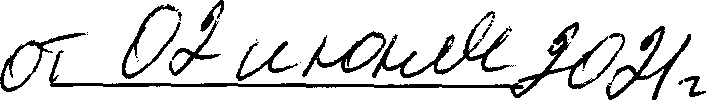 от 02 июня 2021г